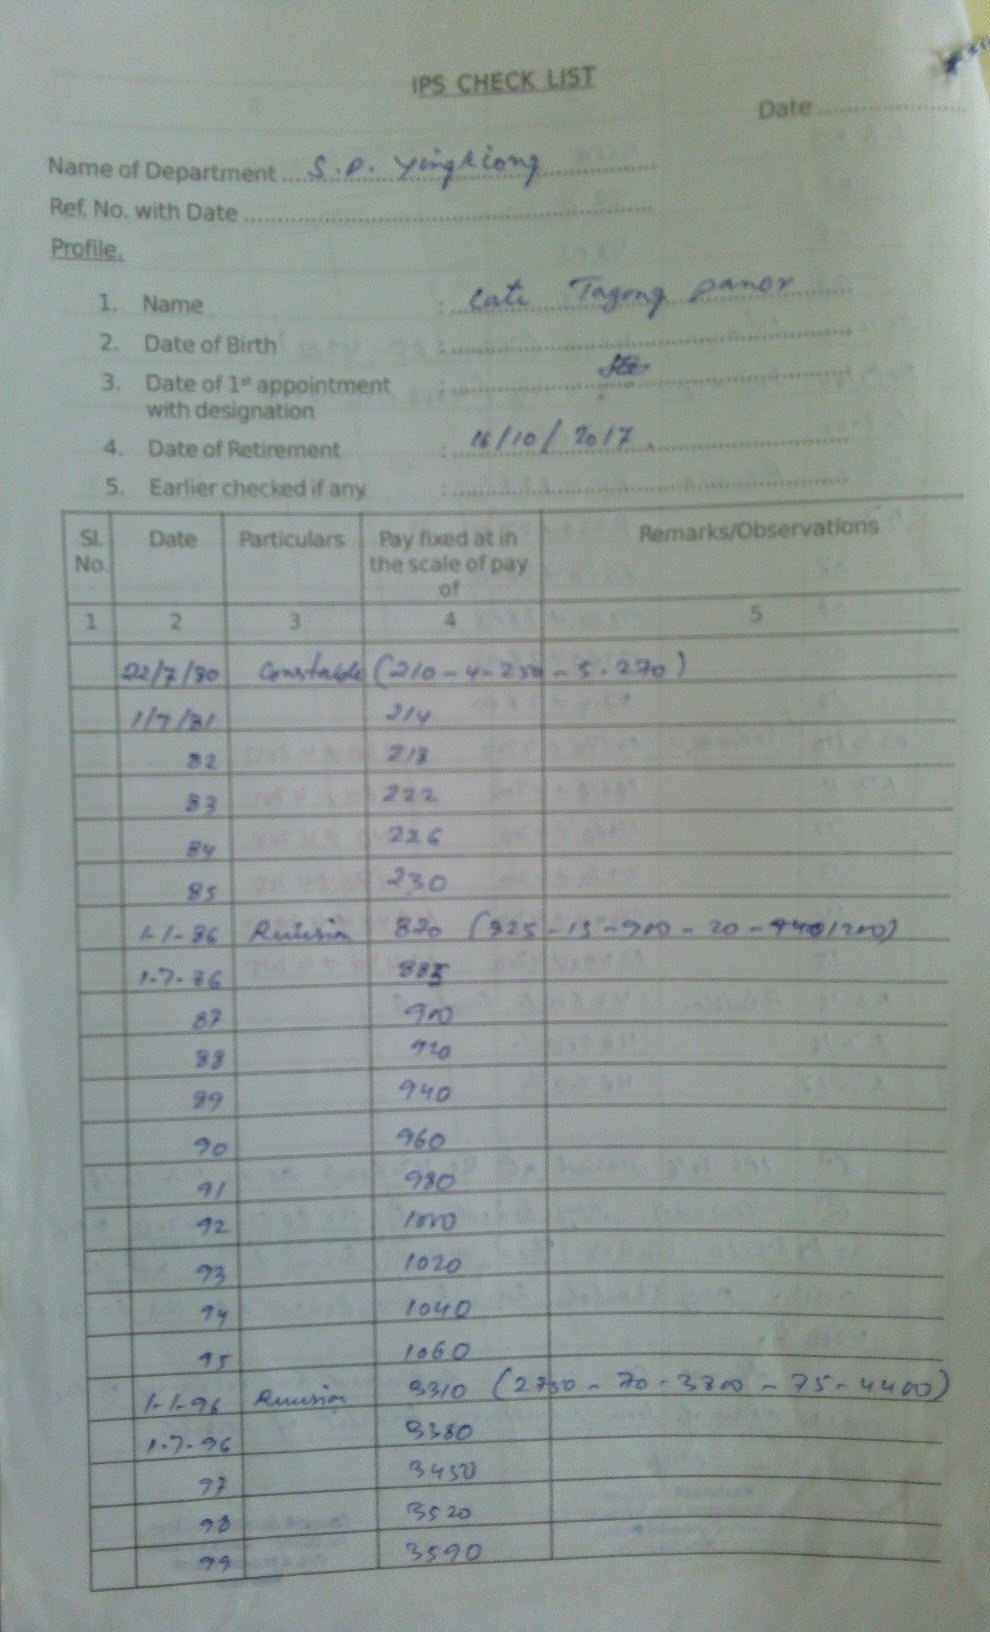 IPS CHECK LIST
Date ....................
Name of Department .... S.P. Yingkiong ....................
Ref. No. with Date ....................
Profile.
1. Name : Late Tagong Panor
2. Date of Birth : ....................
3. Date of 1st appointment : ....................
with designation
4. Date of Retirement : 16/10/2017.
5. Earlier checked if any : ....................
Sl. No. Date Particulars Pay fixed at in the scale of pay of Remarks/Observations
1 2 3 4 5
22/7/80 Constable (210-4-250-5-270)
1/7/81 214
82 218
83 222
84 226
85 230
1-1-86 Revision 870 (825-15-900-20-1200)
1-7-86 885
87 900
88 920
89 940
90 960
91 980
92 1000
93 1020
94 1040
95 1060
1-1-96 Revision 3310 (2750-70-3800-75-4400)
1-7-96 3380
97 3450
98 3520
99 3590